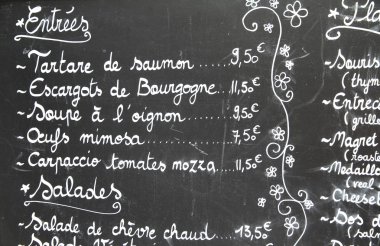 *Entrées
~Tartare de saumon......9,50€
~Escargots de Bourgogne..11,50€
~Soupe à l'oignon......9,50€
~Œufs mimosa.........7,50€
~Carpaccio tomates mozza....11,50€
*Salades
~Salade de chèvre chaud...13,50€
~Salade
*Pla
~Souris
(thym
~Entrec
(grille
~Magnet
(roaste
~Medaillo
(veal
~Cheeseb
~Dos d